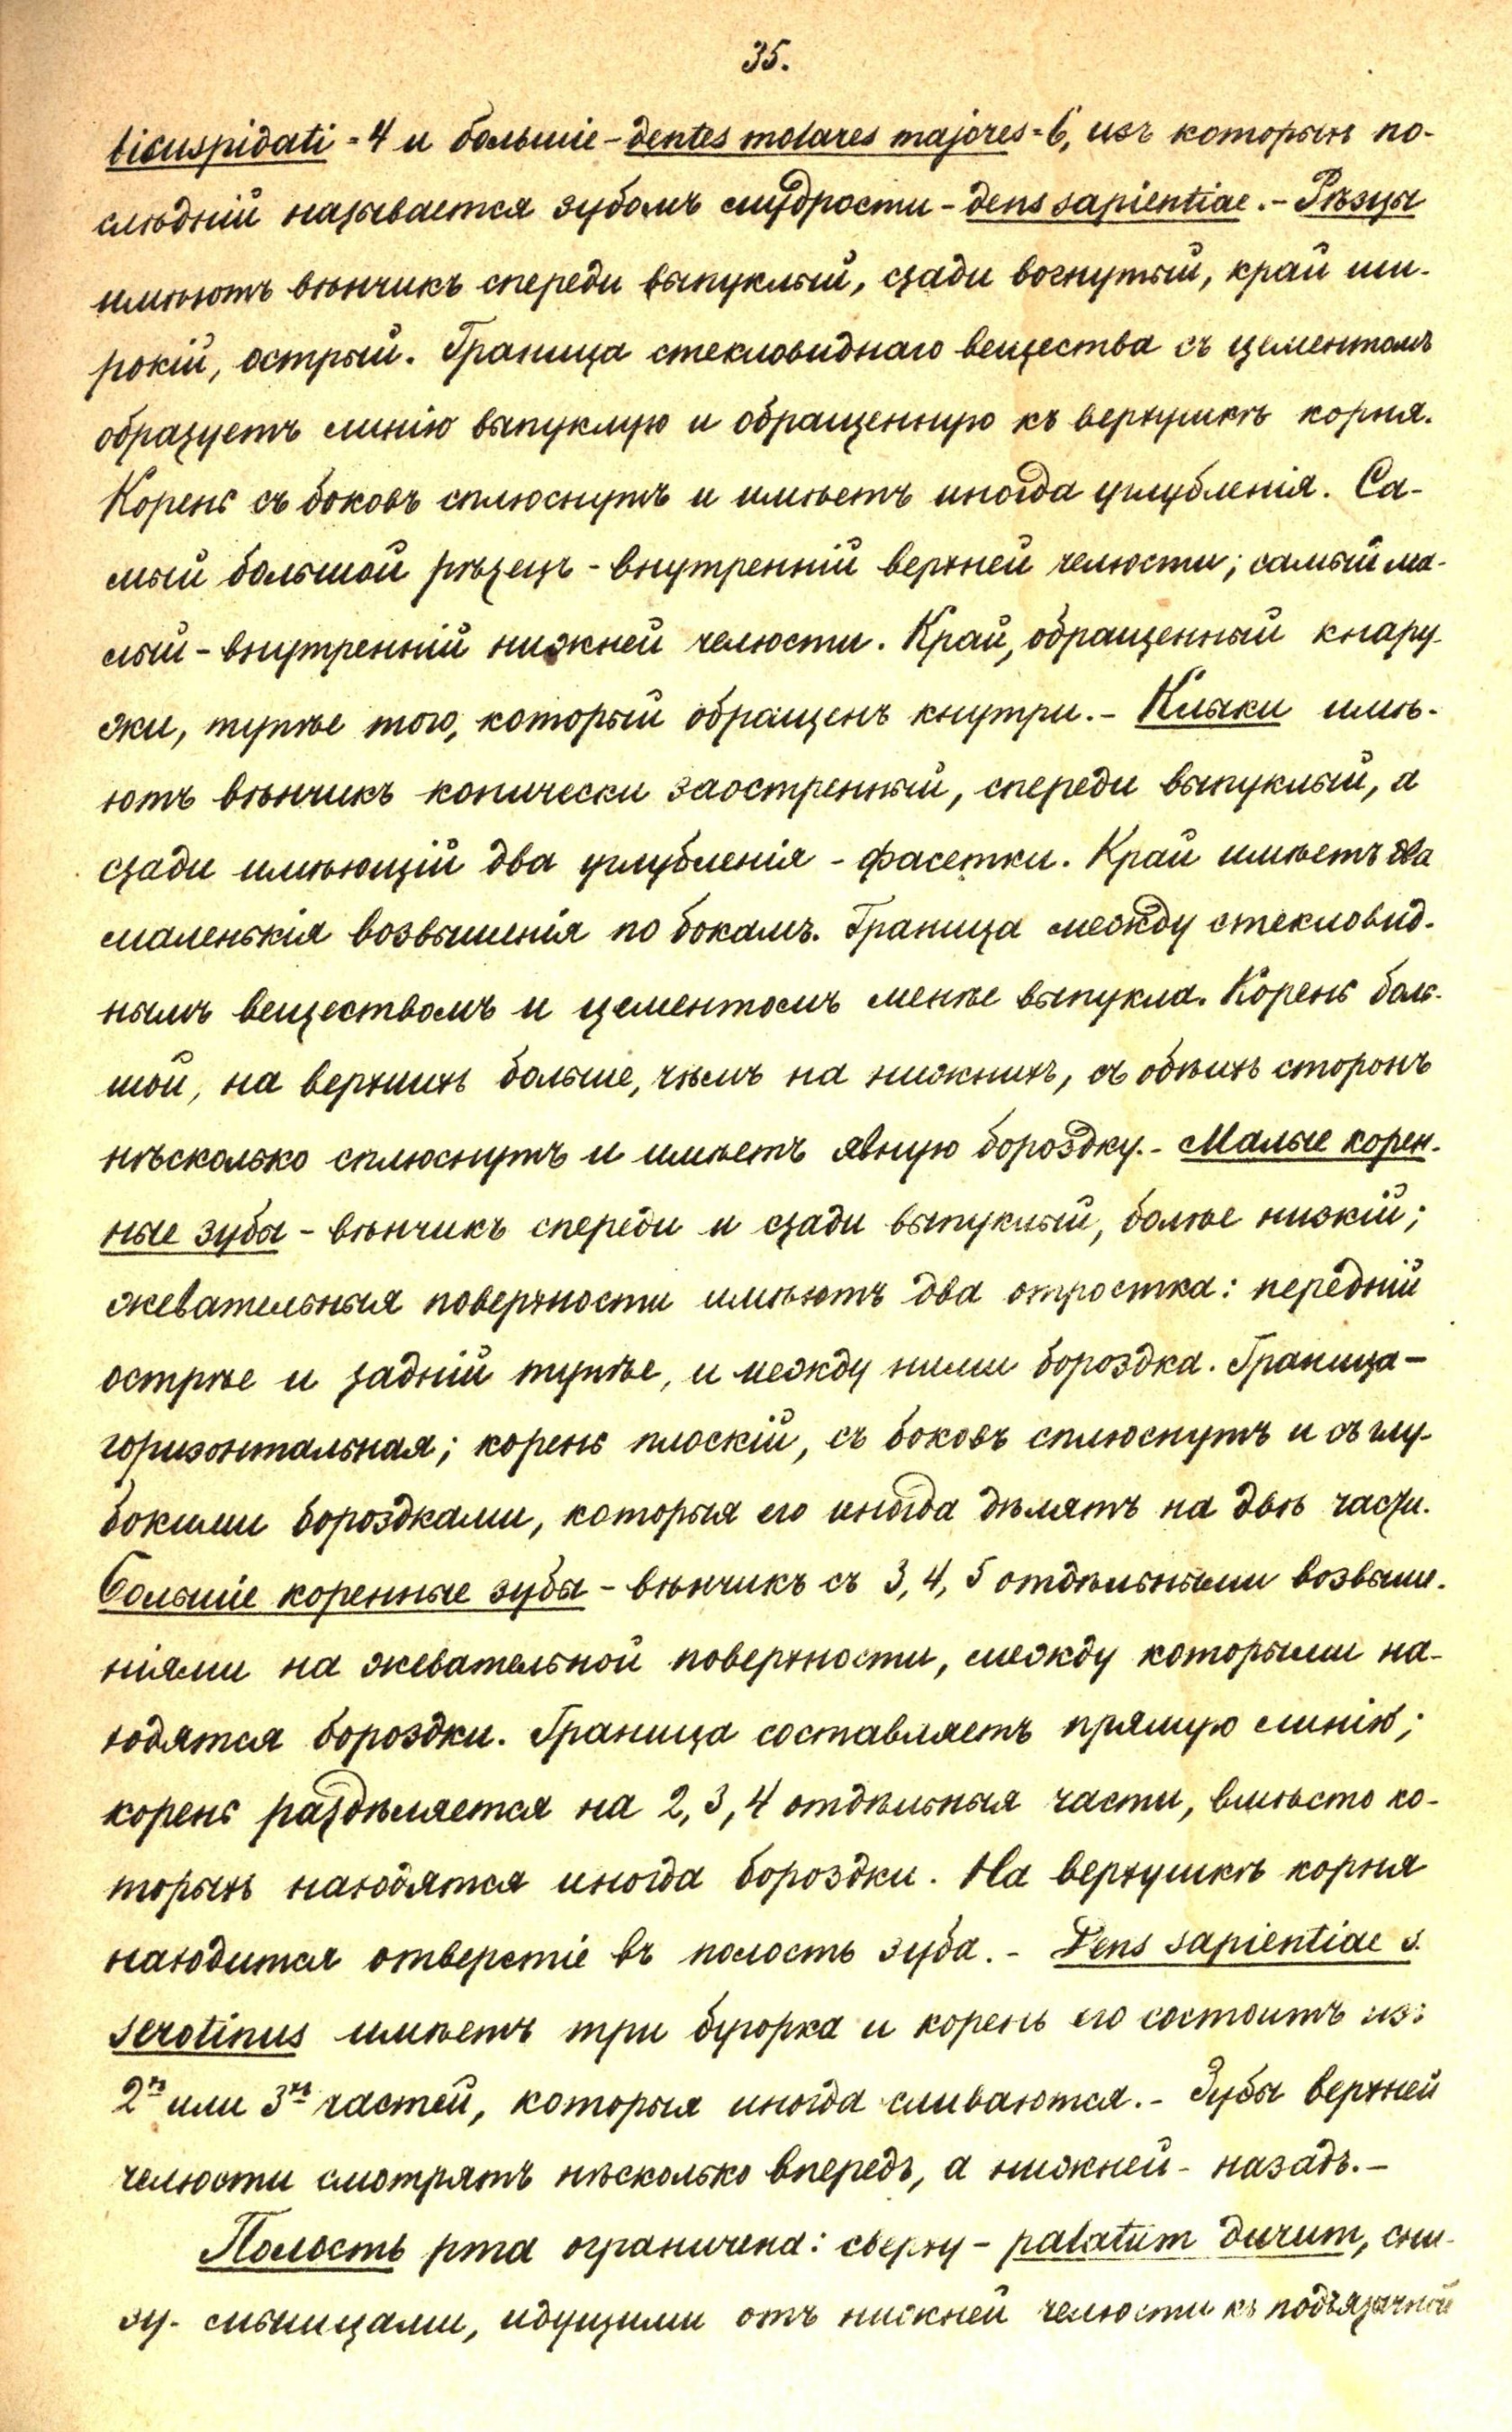 35.
bicuspidati - 4 и большіе - dentes molares majores - 6, изъ которыхъ по-
слѣдній называется зубомъ мудрости - dens sapientiae. - Рѣзцы
имѣютъ вѣнчикъ спереди выпуклый, сзади вогнутый, край ши-
рокій, острый. Граница стекловиднаго вещества съ цементомъ
образуетъ линію выпуклую и обращенную къ верхушкѣ корня.
Корень съ боковъ сплюснутъ и имѣетъ иногда углубленія. Са-
мый большой рѣзецъ - внутренній верхней челюсти; самый ма-
лый - внутренній нижней челюсти. Край, обращенный кнару-
жи, тупѣе того, который обращенъ кнутри. - Клыки имѣ-
ютъ вѣнчикъ конически заостренный, спереди выпуклый, а
сзади имѣющій два углубленія - фасетки. Край имѣетъ два
маленькія возвышенія по бокамъ. Граница между стекловид-
нымъ веществомъ и цементомъ менѣе выпукла. Корень боль-
шой, на верхнихъ больше, чѣмъ на нижнихъ, съ обѣихъ сторонъ
нѣсколько сплюснутъ и имѣетъ явную бороздку. - Малые корен-
ные зубы - вѣнчикъ спереди и сзади выпуклый, болѣе низкій;
жевательныя поверхности имѣютъ два отростка: передній
острѣе и задній тупѣе, и между ними бороздка. Граница -
горизонтальная; корень плоскій, съ боковъ сплюснутъ и съ глу-
бокими бороздками, которыя его иногда дѣлятъ на двѣ части.
Большіе коренные зубы - вѣнчикъ съ 3, 4, 5 отдѣльными возвыше-
ніями на жевательной поверхности, между которыми на-
ходятся бороздки. Граница составляетъ прямую линію;
корень раздѣляется на 2, 3, 4 отдѣльныя части, вмѣсто ко-
торыхъ находятся иногда бороздки. На верхушкѣ корня
находится отверстіе въ полость зуба. - Dens sapientiae s.
serotinus имѣетъ три бугорка и корень его состоитъ изъ
2хъ или 3хъ частей, которыя иногда сливаются. - Зубы верхней
челюсти смотрятъ нѣсколько впередъ, а нижней - назадъ. -
Полость рта ограничена: сверху - palatum durum, сни-
зу - мышцами, идущими отъ нижней челюсти къ подъязычной